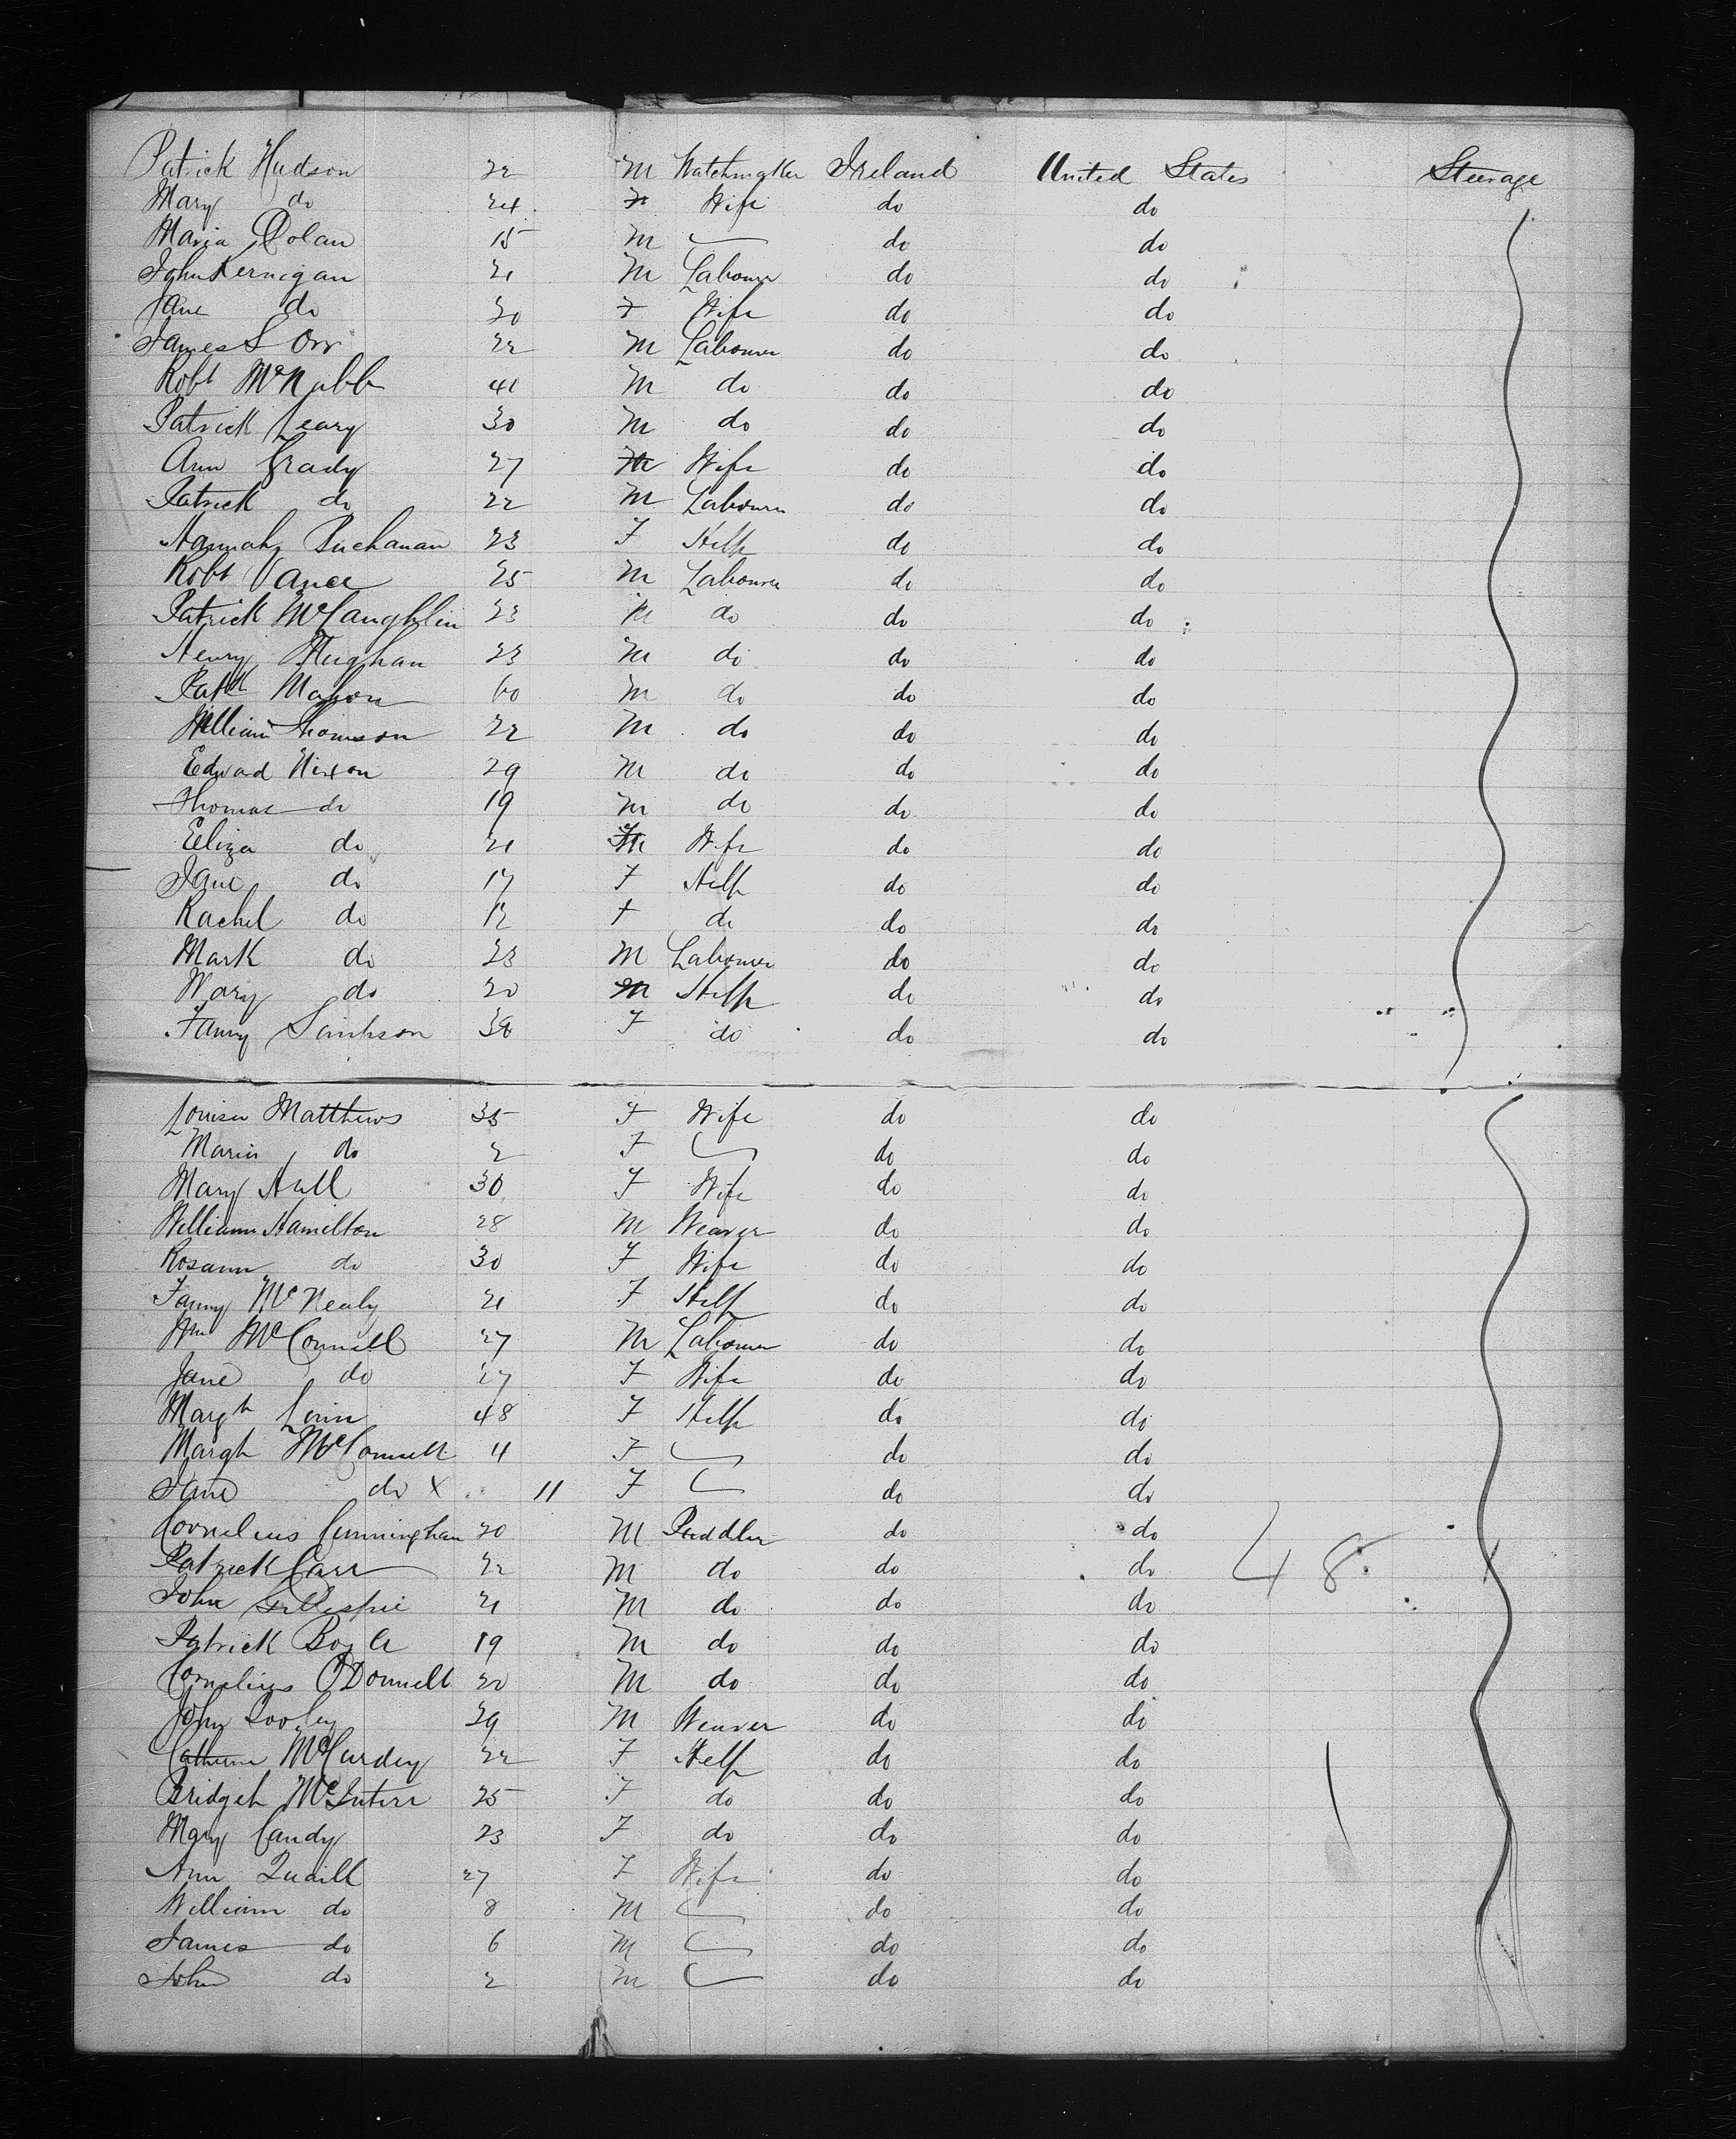 Patrick Hudson 22 M Watchmaker Ireland United States Steerage
Mary do 24 F Wife do do
Maria Dolan 15 M do do
John Kernigan 21 M Labourer do do
Jane do 30 F Wife do do
James S Orr 22 M Labourer do do
Robt McNabb 41 M do do do
Patrick Leary 30 M do do do
Ann Grady 27 Wife do do
Patrick do 22 M Labourer do do
Hannah Buchanan 23 F Help do do
Robt Vance 25 M Labourer do do
Patrick McLaughlin 23 M do do do
Henry Hughan 23 M do do do
Patk Mahon 60 M do do do
William Thomson 22 M do do do
Edward Nixon 29 M do do do
Thomas do 19 M do do do
Eeliza do 21 F Wife do do
Jane do 17 F Help do do
Rachel do 12 F do do do
Mark do 23 M Labourer do do
Mary do 20 Help do do
Fanny 30 F do do do
Louisa Matthews 35 F Wife do do
Maria do 2 F do do
Mary Hull 30 F Wife do do
William Hamilton 28 M Weaver do do
Rosann do 30 F Wife do do
Fanny McNealy 21 F Help do do
Wm McConnell 27 M Labourer do do
Jane do 27 F Wife do do
Margt Linn 48 F Help do do
Margh McConnell 4 F do do
Jane do X 11 F do do
Cornelius Cunningham 20 M Peddler do do
Patrick Carr 22 M do do do 48
John Gillespie 21 M do do do
Patrick Boyle 19 M do do do
Cornelius O'Donnell 20 M do do do
John Dooley 29 M Weaver do do
Catherine McCurdey 22 F Help do do
Bridget McInterr 25 F do do do
Mary Candy 23 F do do do
Ann Quaill 27 F Wife do do
William do 8 M do do
James do 6 M do do
John do 2 M do do